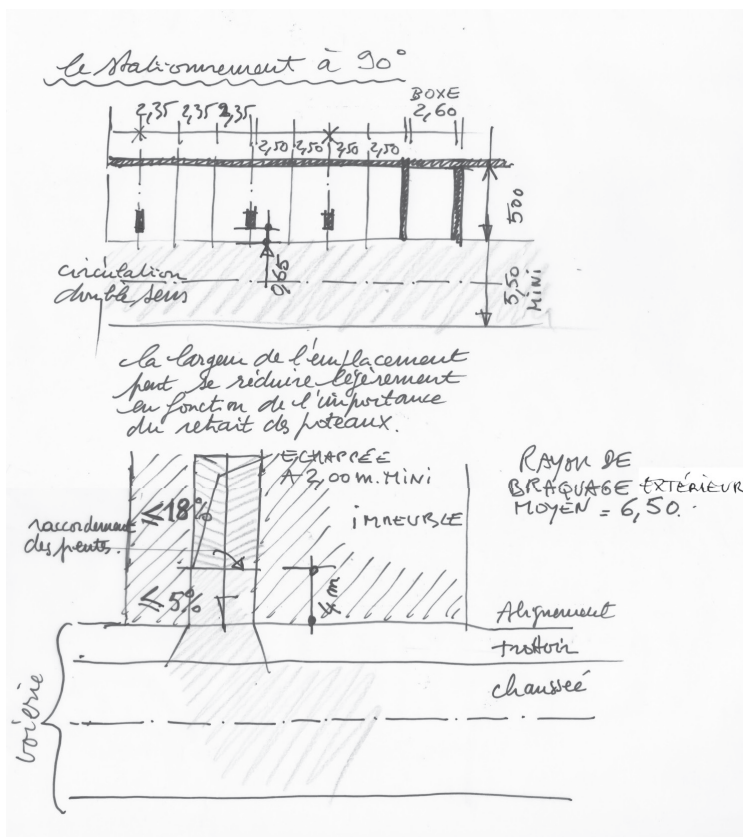 le stationnement à 90°
BOXE
2,35 2,35 2,35 2,60
2,50 2,50 2,50 2,50
500
circulation
double sens
0,65
5,50
MINI
la largeur de l'emplacement
peut se réduire légèrement
en fonction de l'importance
du retrait des poteaux.
ECHAPPÉE
A 2,00 m. MINI
RAYON DE
BRAQUAGE EXTÉRIEUR
MOYEN = 6,50.
≤18%
iMMEUBLE
raccordement
des pentes.
≤ 5%
4m
Alignement
trottoir
chaussée
voierie